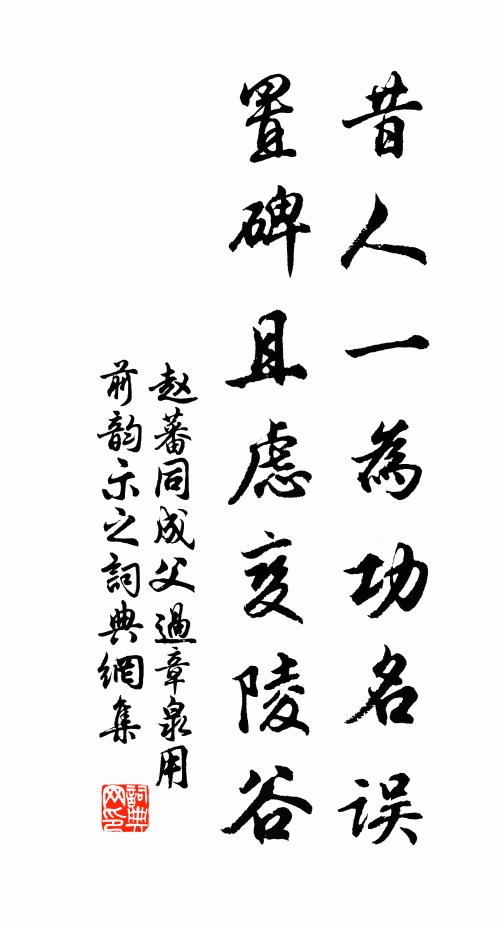 昔人一為功名误
置碑且慮变陵谷
赵蕃同成父過章泉用
前韵示之詞典網集
詞典网印